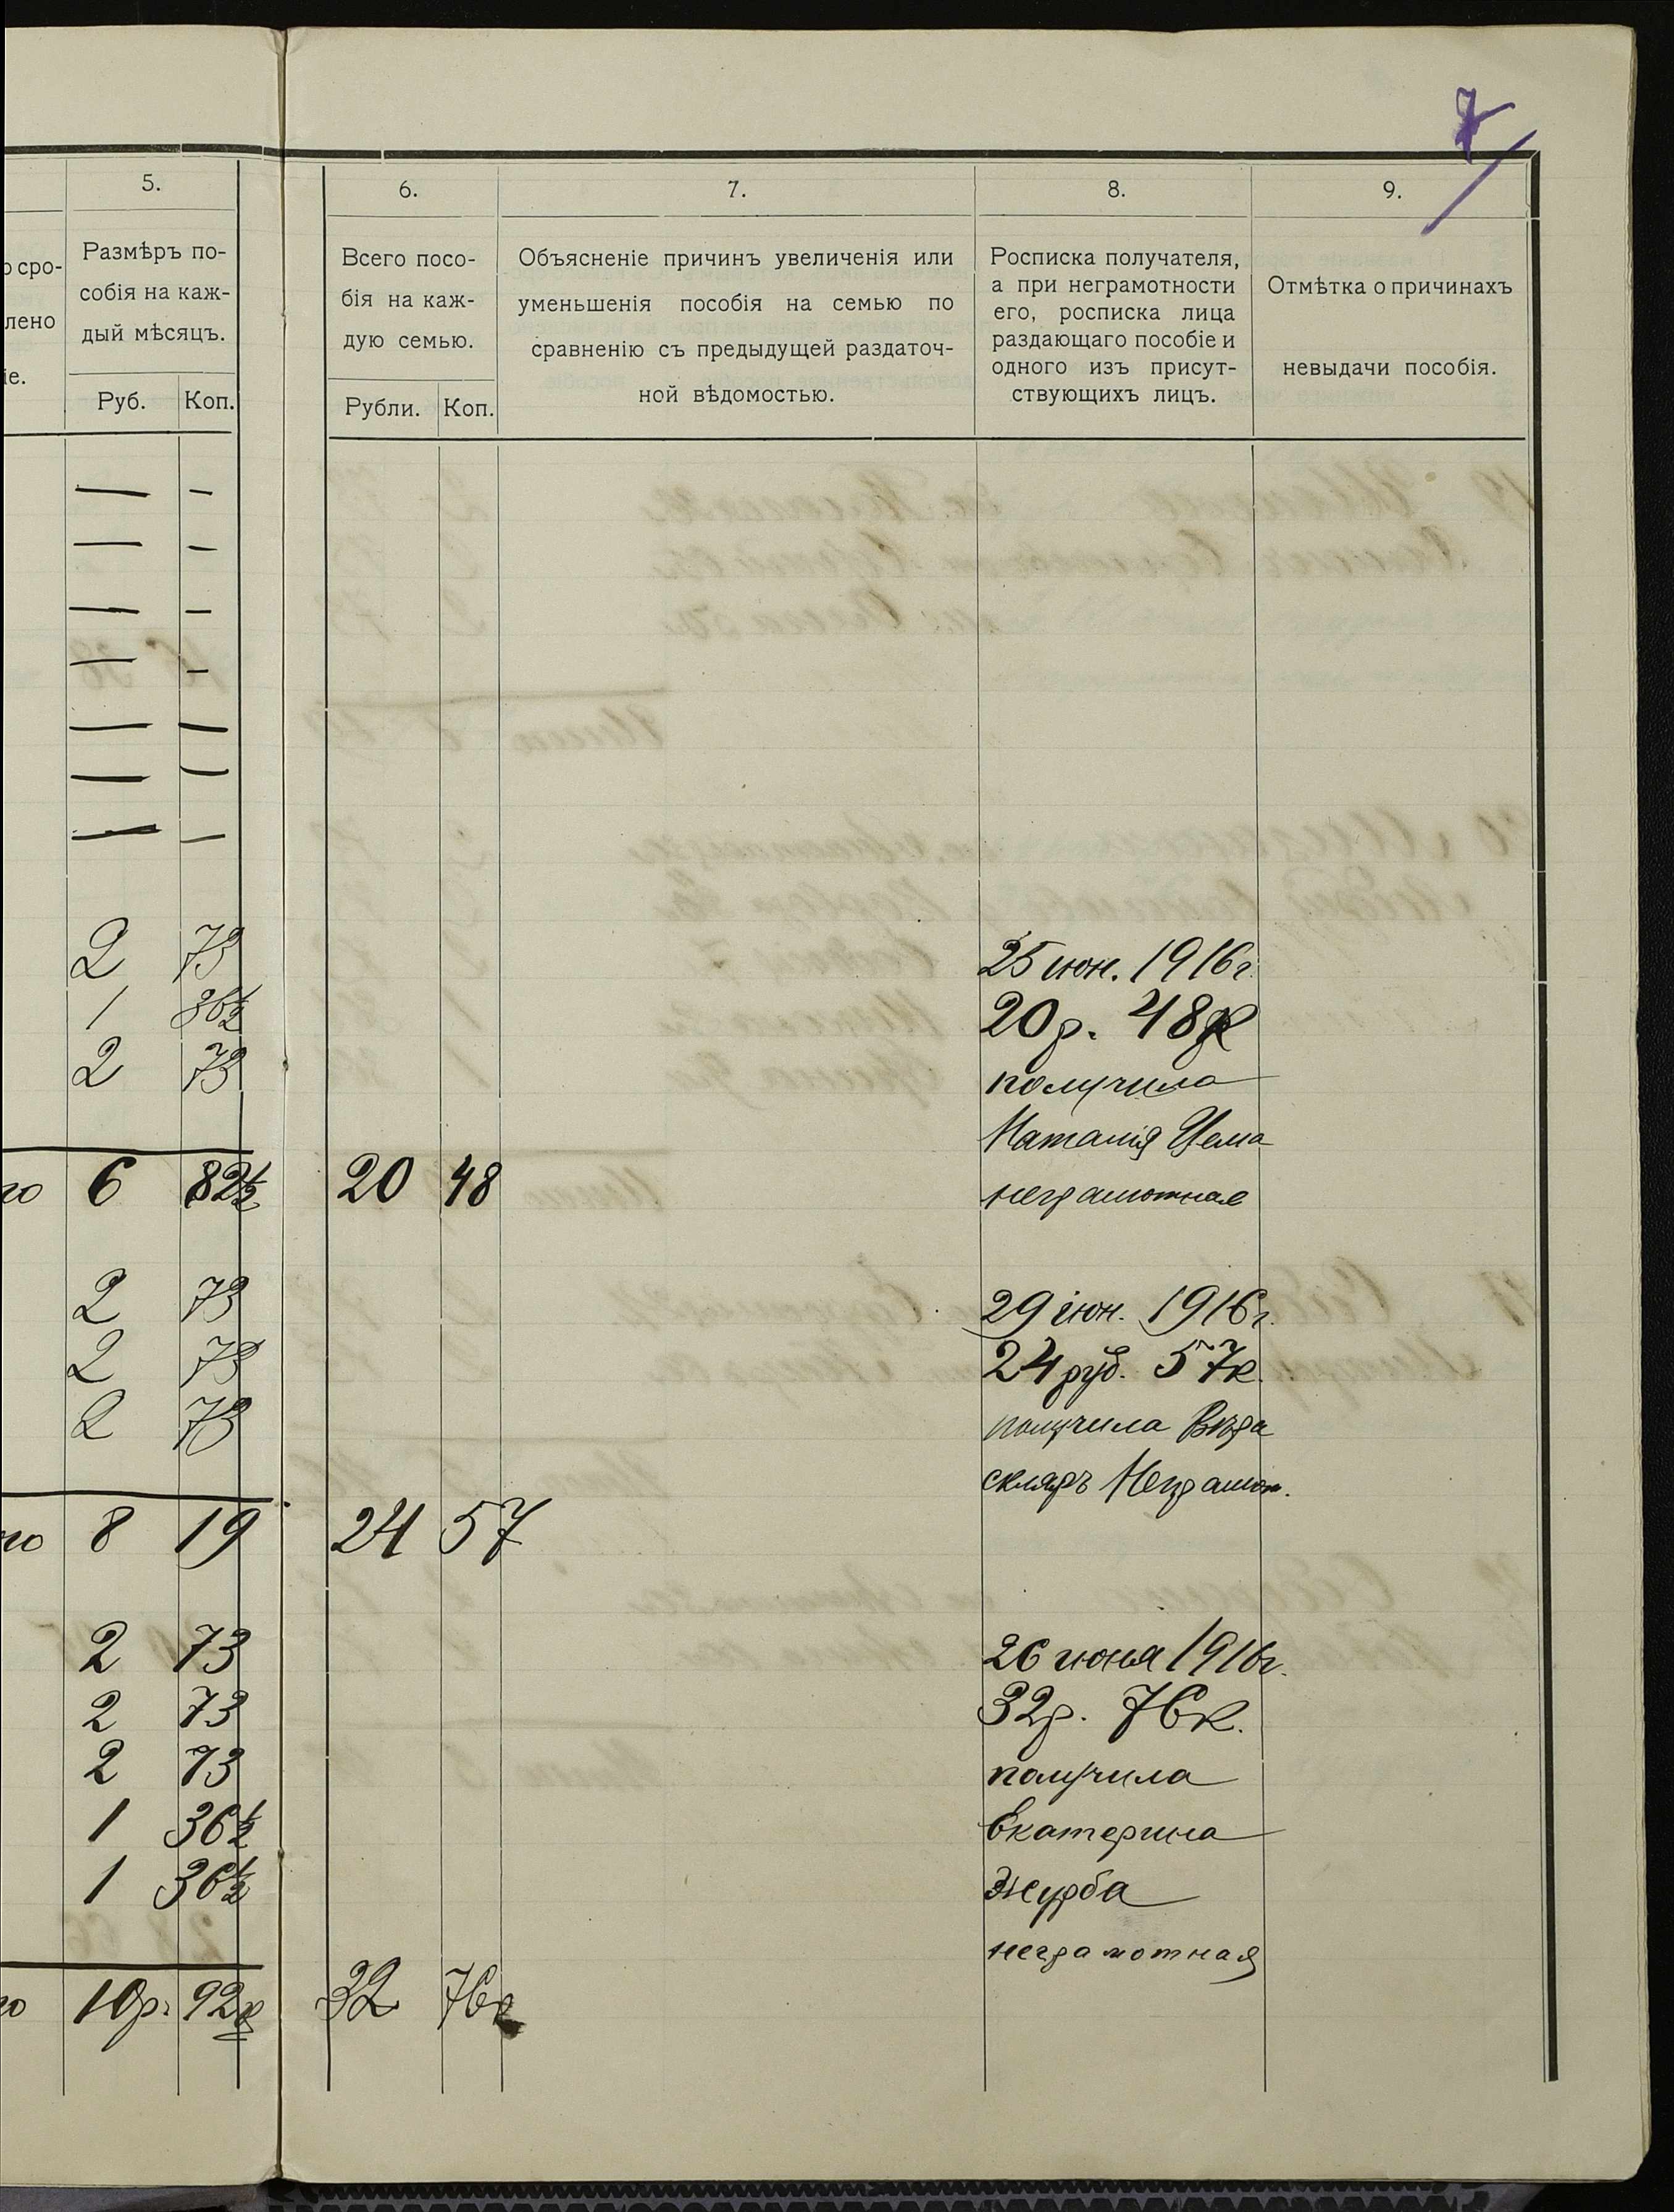 7
5.
6.
7.
8.
9.
о сро-
лено
іе.
Размѣръ по-
собія на каж-
дый мѣсяцъ.
Руб. Коп.
Всего посо-
бія на каж-
дую семью.
Рубли. Коп.
Объясненіе причинъ увеличенія или
уменьшенія пособія на семью по
сравненію съ предыдущей раздаточ-
ной вѣдомостью.
Росписка получателя,
а при неграмотности
его, росписка лица
раздающаго пособіе и
одного изъ присут-
ствующихъ лицъ.
Отмѣтка о причинахъ
невыдачи пособія.
— —
— —
— —
— —
— —
— —
— —
2 73
1 36½
2 73
го 6 82½ 20 48
25 июн. 1916 г.
20 р. 48 к
получила
Наталія Цема
неграмотная
2 73
2 73
2 73
го 8 19 24 57
29 іюн. 1916 г.
24 руб. 57 к.
получила Вѣра
скляръ Неграмот.
2 73
2 73
2 73
1 36½
1 36½
го 10 р. 92 к 32 76 к
26 июня 1916 г.
32 р. 76 к.
получила
Екатерина
Журба
неграмотная